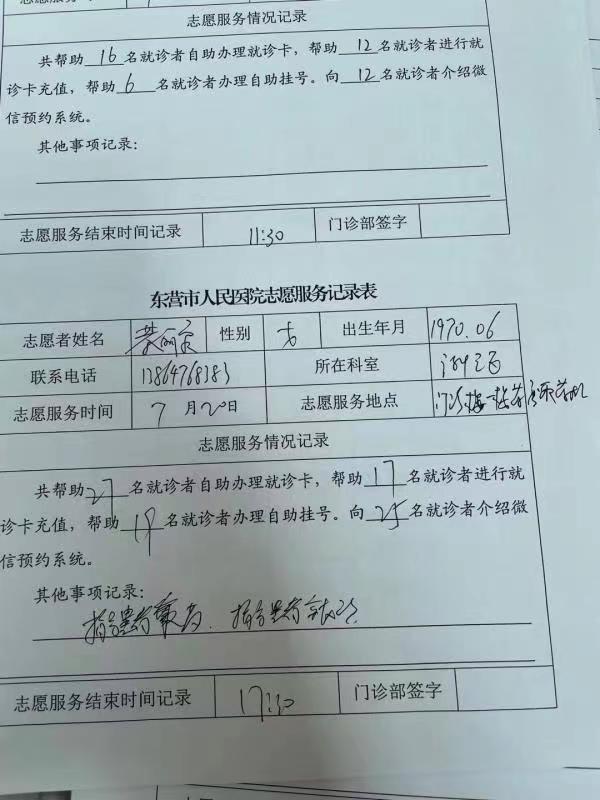 志愿服务情况记录
共帮助 16 名就诊者自助办理就诊卡，帮助 12 名就诊者进行就
诊卡充值，帮助 6 名就诊者办理自助挂号。向 12 名就诊者介绍微
信预约系统。
其他事项记录：
志愿服务结束时间记录 11:30 门诊部签字
东营市人民医院志愿服务记录表
志愿者姓名 性别 女 出生年月 1970.06
联系电话 13864768383 所在科室
志愿服务时间 7 月20日 志愿服务地点
志愿服务情况记录
共帮助 27 名就诊者自助办理就诊卡，帮助 17 名就诊者进行就
诊卡充值，帮助 19 名就诊者办理自助挂号。向 25 名就诊者介绍微
信预约系统。
其他事项记录：
志愿服务结束时间记录 17:30 门诊部签字